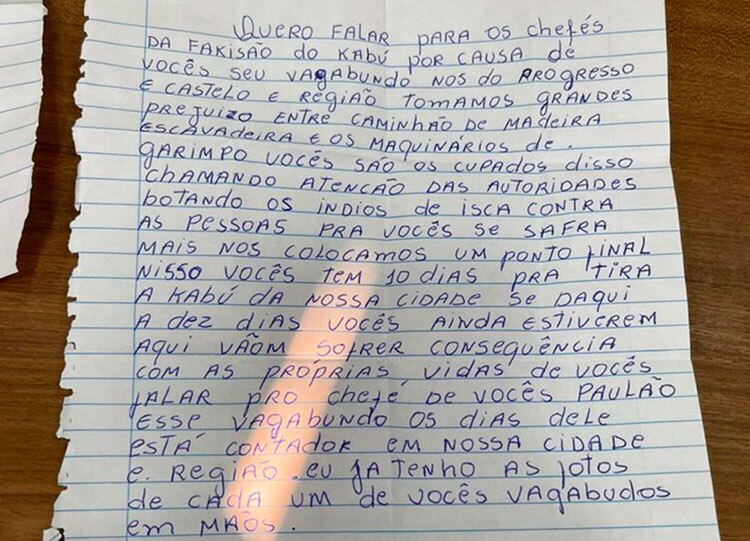 QUERO FALAR PARA OS CHEFÉS
DA FAKISÃO do KABÚ POR CAUSA de
VOCÊS SEU VAGABUNDO NOS do PROGRESSO
E CASTELO E REGIÃO TOMAMOS GRANDES
PREJUIZO ENTRE CAMINHÃO DE MADEIRA
ESCAVADEIRA E OS MAQUINÁRIOS de.
GARIMPO VOCÊS SÃO OS CUPADOS DISSO
CHAMANDO ATENCÃO DAS AUTORIDADES
BOTANDO OS ÍNDIOS de ISCA CONTRA
AS PESSOAS PRA VOCÊS SE SAFRA
MAIS NOS COLOCAMOS UM PONTO FINAL
NISSO VOCÊS TEM 10 DIAS PRA TIRA
A KABÚ DA NOSSA CIDADE SE DAQUI
A dEZ dIAS VOCÊS AINDA ESTIVEREM
AQUI VÃOM SOFRER CONSEQUÊNCIA
COM AS PRÓPRIAS VIDAS DE VOCÊS
FALAR PRO CHEFÉ DE VOCÊS PAULÃO
ESSE VAGABUNDO OS DIAS DELE
ESTÁ CONTADOR EM NOSSA CIDADE
E. REGIÃO. EU JA TENHO AS FOTOS
de CADA UM de VOCÊS VAGABUDOS
em MÃOS.